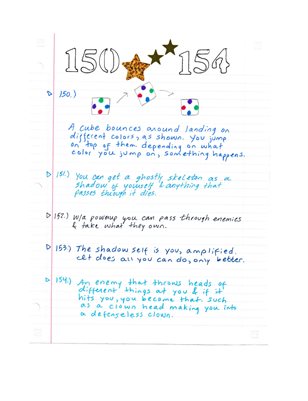 150 154
150.)
A cube bounces around landing on
different colors, as shown. You jump
on top of them depending on what
color you jump on, something happens.
151.) You can get a ghostly skeleton as a
shadow of yourself & anything that
passes through it dies.
152.) w/a powerup you can pass through enemies
& take what they own.
153.) The shadow self is you, amplified.
It does all you can do, only better.
154.) An enemy that throws heads of
different things at you & if it
hits you, you become that. Such
as a clown head making you into
a defenseless clown.